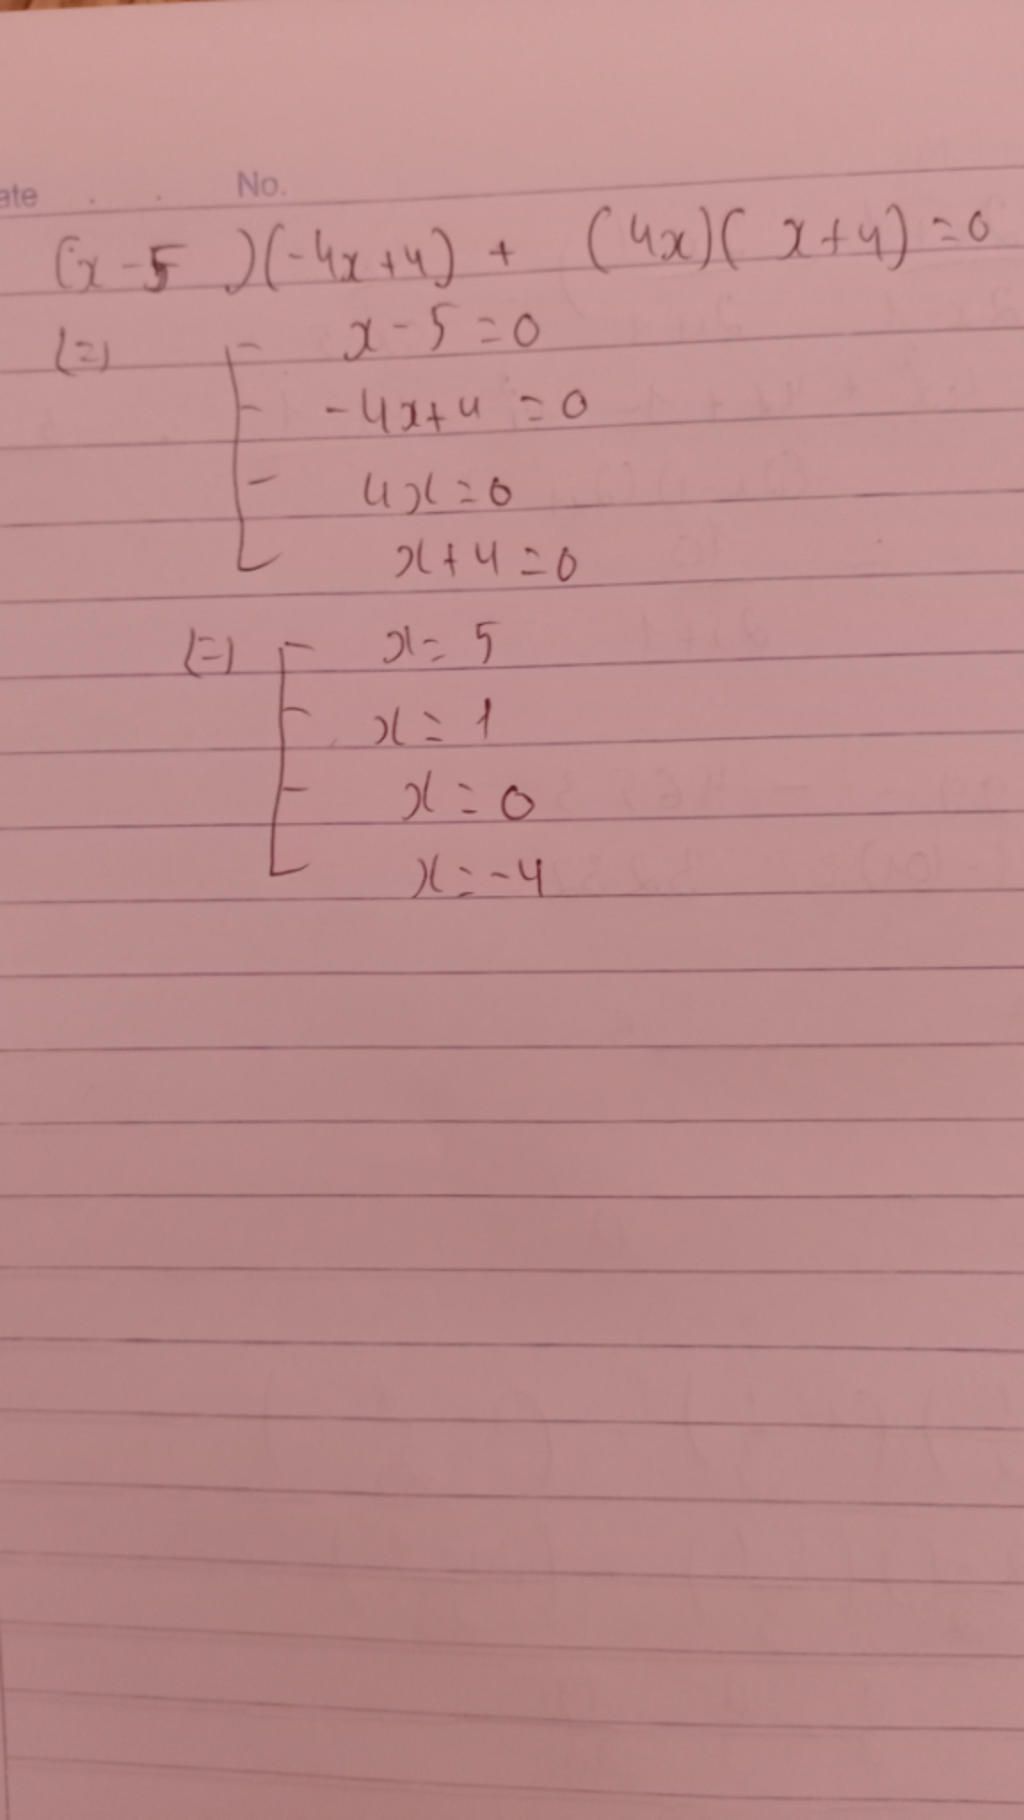 ate . . No.
(x - 5 )(-4x+4) + (4x)( x+4) = 0
(=) x - 5 = 0
-4x+4 = 0
4x = 0
x+4 = 0
(=) x = 5
x = 1
x = 0
x = -4